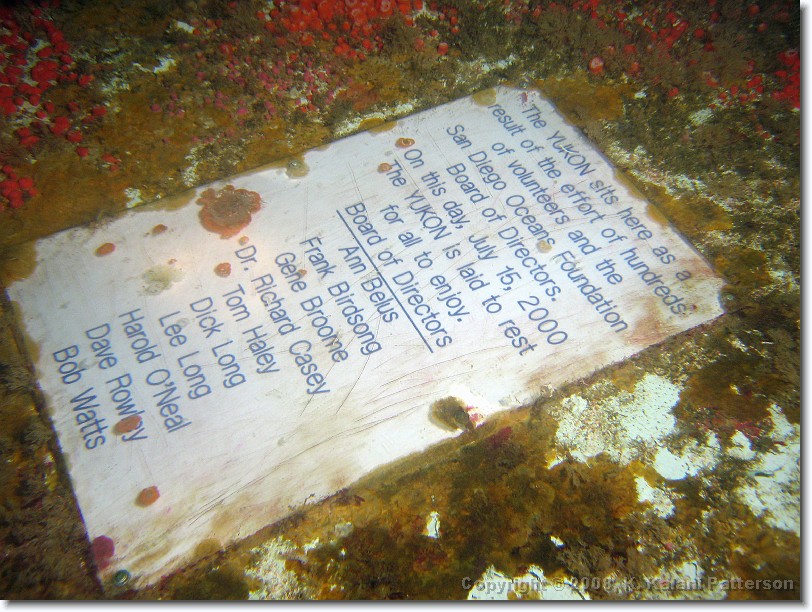 The YUKON sits here as a
result of the effort of hundreds
of volunteers and the
San Diego Oceans Foundation
Board of Directors.
On this day, July 15, 2000
The YUKON is laid to rest
for all to enjoy.
Board of Directors
Ann Belus
Frank Birdsong
Gene Broome
Dr. Richard Casey
Tom Haley
Dick Long
Lee Long
Harold O'Neal
Dave Rowley
Bob Watts
Copyright © 2008, K. Kalani Patterson